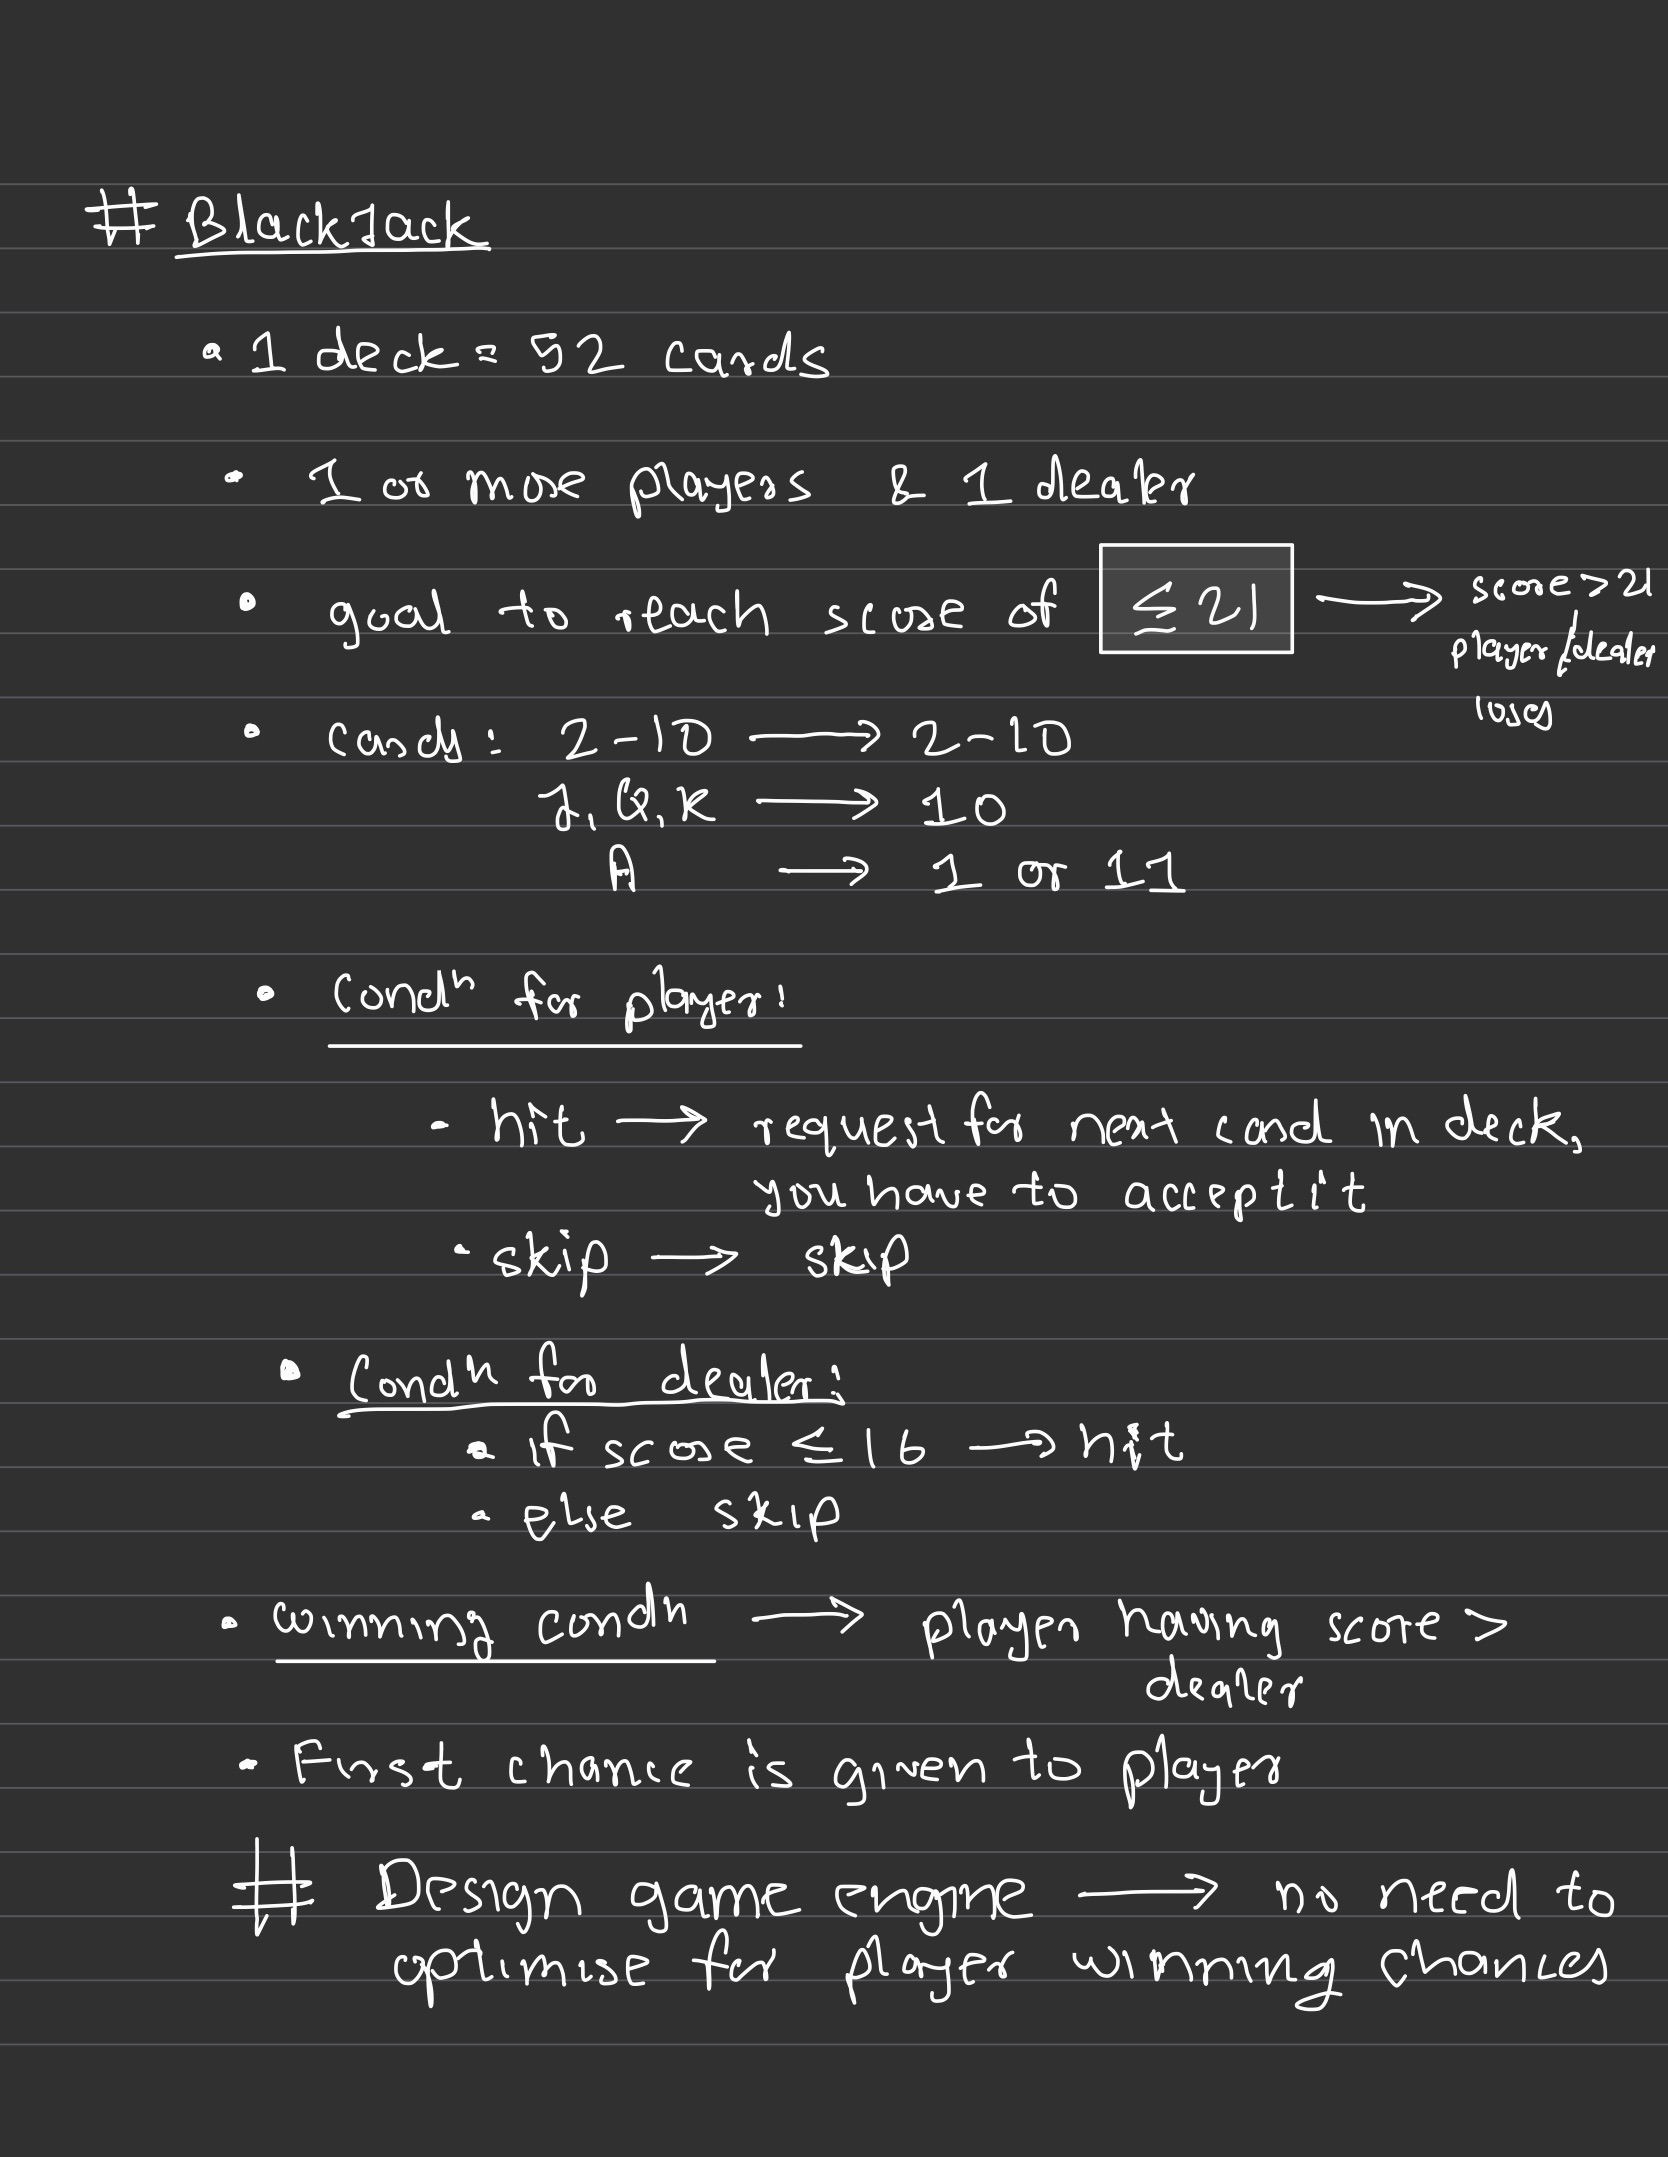 # BlackJack
• 1 deck = 52 cards
• 1 or more players & 1 dealer
• goal to reach score of ≤ 21 → score > 21
player/dealer
loses
• cards: 2-10 → 2-10
J, Q, K → 10
A → 1 or 11
• Condⁿ for player:
• hit → request for next card in deck,
you have to accept it
• skip → skip
• Condⁿ for dealer:
• if score ≤ 16 → hit
• else skip
• winning condn → player having score >
dealer
• First chance is given to player
# Design game engine → no need to
optimise for player winning chances